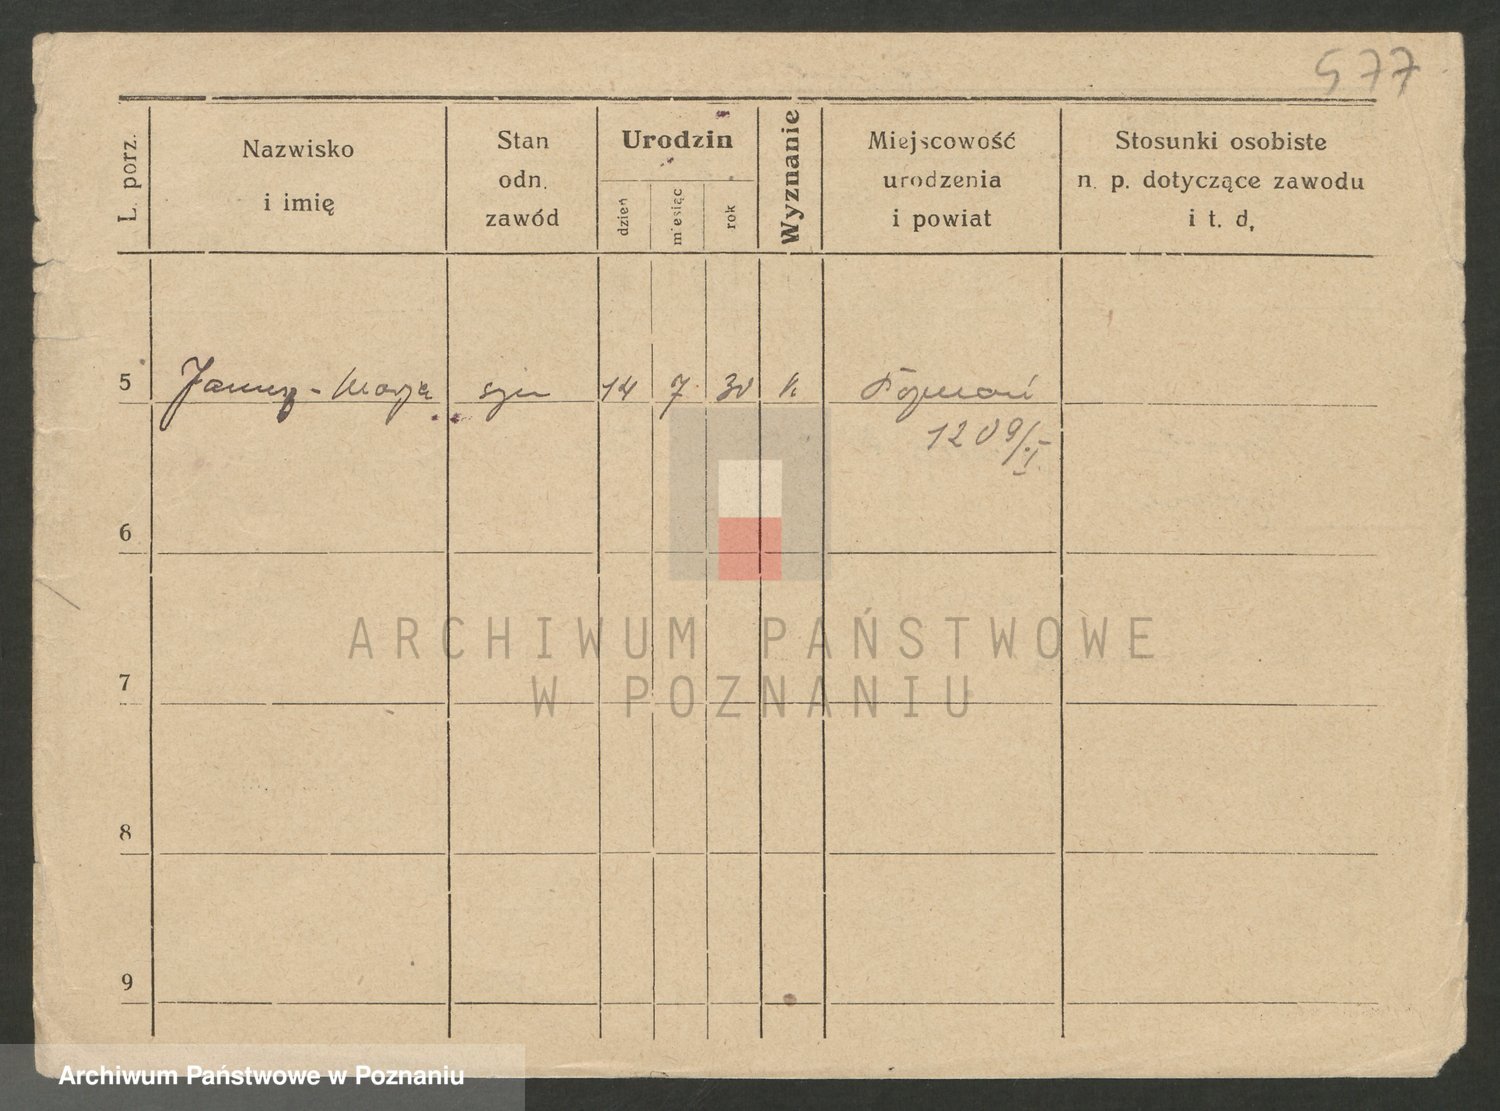 577
L. porz.
Nazwisko
i imię
Stan
odn.
zawód
Urodzin
dzień
miesiąc
rok
Wyznanie
Miejscowość
urodzenia
i powiat
Stosunki osobiste
n. p. dotyczące zawodu
i t. d.
5 Janusz - Marja syn 14 7 30 k Poznań
1209/I.
6
7
8
9
ARCHIWUM PAŃSTWOWE
W POZNANIU
Archiwum Państwowe w Poznaniu